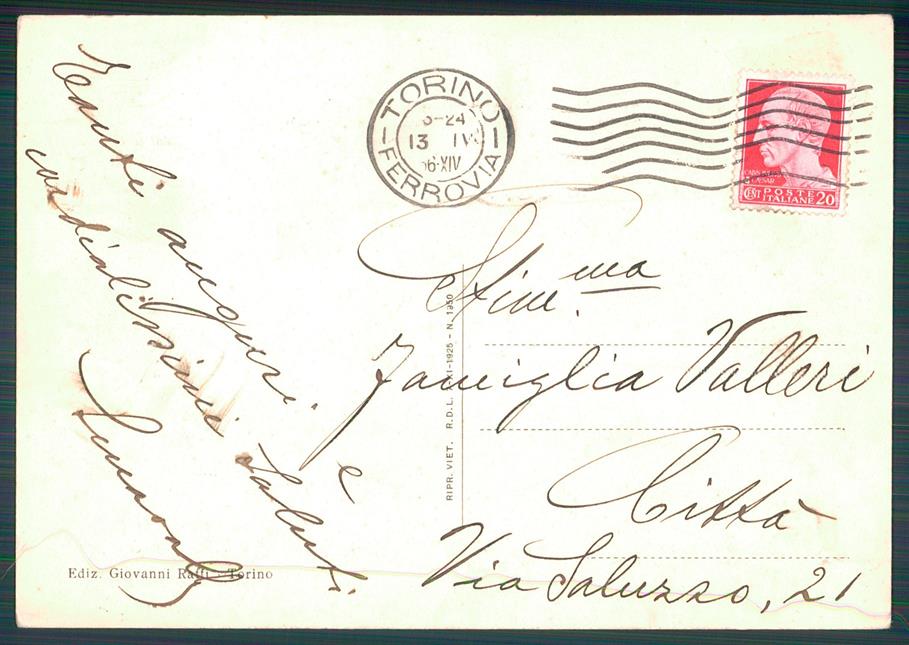 Tanti auguri. e
cordialissimi saluti.
TORINO
-24
13 IV
36-XIV
FERROVIA
CAESAR
CENT POSTE ITALIANE 20
Stim.ma
Famiglia Valleri
Città
Via Saluzzo, 21
RIPR. VIET. R.D.L. XI-1925 - N. 1950
Ediz. Giovanni Raffi - Torino